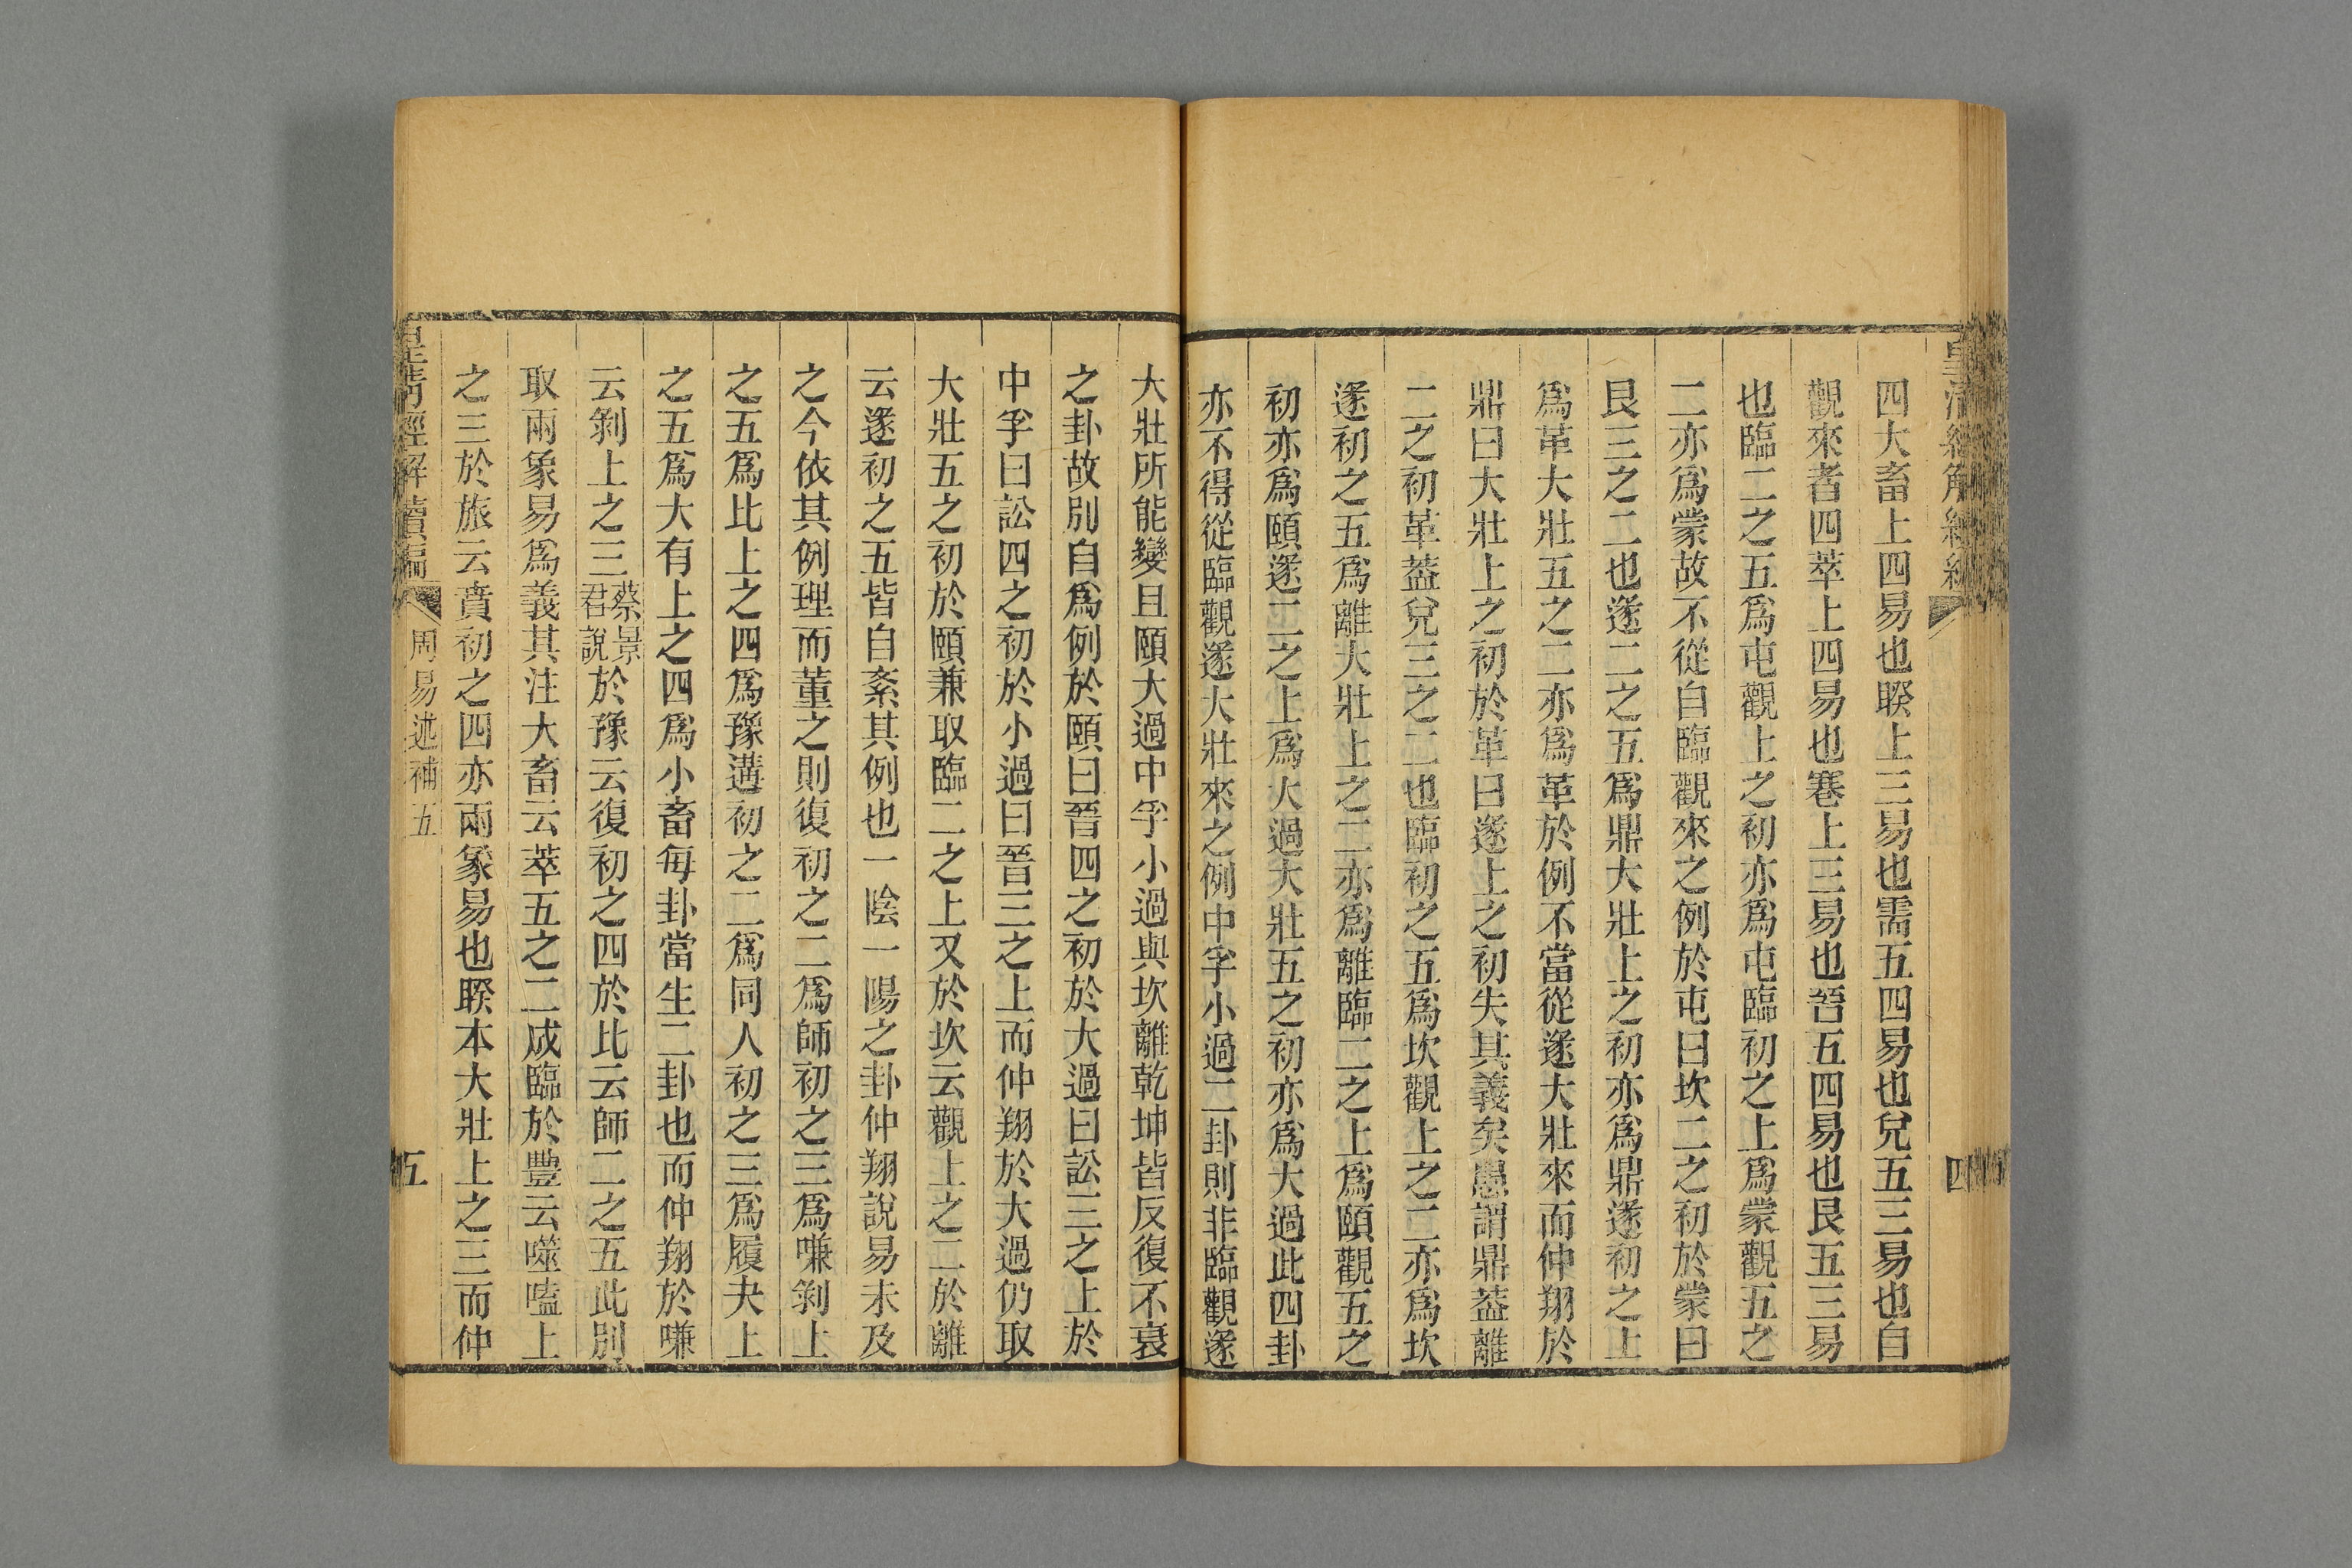 四大畜上四易也睽上三易也需五四易也兌五三易也自
觀來者四萃上四易也蹇上三易也晉五四易也艮五三易
也臨二之五爲屯觀上之初亦爲屯臨初之上爲蒙觀五之
二亦爲蒙故不從自臨觀來之例於屯曰坎二之初於蒙曰
艮三之二也遂二之五爲鼎大壯上之初亦爲鼎遂初之上
爲革大壯五之二亦爲革於例不當從遂大壯來而仲翔於
鼎曰大壯上之初於革曰遂上之初失其義矣愚謂鼎葢離
二之初革葢兌三之二也臨初之五爲坎觀上之二亦爲坎
遂初之五爲離大壯上之二亦爲離臨二之上爲頤觀五之
初亦爲頤遂二之上爲大過大壯五之初亦爲大過此四卦
亦不得從臨觀遂大壯來之例中孚小過二卦則非臨觀遂
四
大壯所能變且頤大過中孚小過與坎離乾坤皆反復不衰
之卦故別自爲例於頤曰晉四之初於大過曰訟三之上於
中孚曰訟四之初於小過曰晉三之上而仲翔於大過仍取
大壯五之初於頤兼取臨二之上又於坎云觀上之二於離
云遂初之五皆自紊其例也一陰一陽之卦仲翔說易未及
之今依其例理而董之則復初之二爲師初之三爲嗛剝上
之五爲比上之四爲豫遘初之二爲同人初之三爲履夬上
之五爲大有上之四爲小畜每卦當生二卦也而仲翔於嗛
云剝上之三蔡景君說於豫云復初之四於比云師二之五此別
取兩象易爲義其注大畜云萃五之二成臨於豐云噬嗑上
之三於旅云賁初之四亦兩象易也睽本大壯上之三而仲
皇清經解續編 周易述補五 五